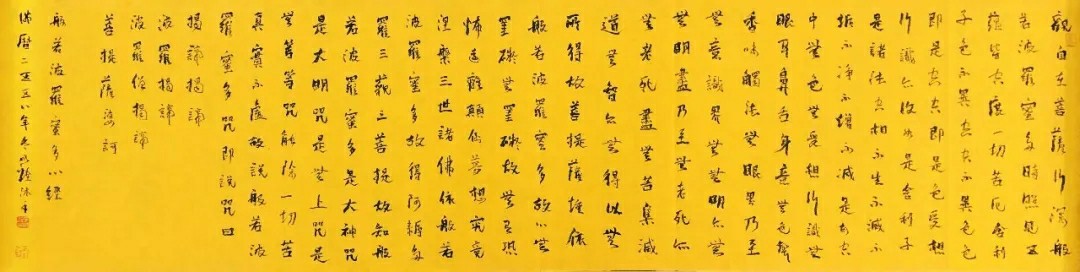 觀自在菩薩行深般
若波羅蜜多時照見五
蘊皆空度一切苦厄舍利
子色不異空空不異色色
即是空空即是色受想
行識亦復如是舍利子
是諸法空相不生不滅不
垢不淨不增不減是故空
中無色無受想行識無
眼耳鼻舌身意無色聲
香味觸法無眼界乃至
無意識界無無明亦無
無明盡乃至無老死亦
無老死盡無苦集滅
道無智亦無得以無
所得故菩提薩埵依
般若波羅蜜多故心無
罣礙無罣礙故無有恐
怖遠離顛倒夢想究竟
涅槃三世諸佛依般若
波羅蜜多故得阿耨多
羅三藐三菩提故知般
若波羅蜜多是大神咒
是大明咒是無上咒是
無等等咒能除一切苦
真實不虛故說般若波
羅蜜多咒即說咒曰
揭諦揭諦
波羅揭諦
波羅僧揭諦
菩提薩婆訶
般若波羅蜜多心經
佛曆二五五八年